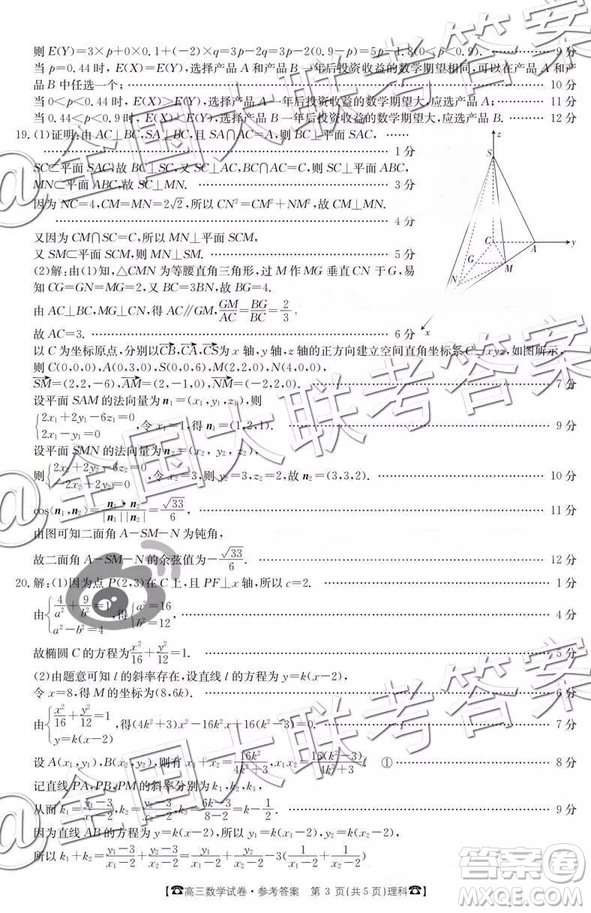 则 E(Y)=3×p+0×0.1+(-2)×q=3p-2q=3p-2(0.9-p)=5p-1.8(0<p<0.9). 9分
当 p=0.44 时,E(X)=E(Y),选择产品 A 和产品 B 一年后投资收益的数学期望相同,可以在产品 A 和产
品 B 中任选一个; 10分
当 0<p<0.44 时,E(X)>E(Y),选择产品 A 一年后投资收益的数学期望大,应选产品 A; 11分
当 0.44<p<0.9 时,E(X)<E(Y),选择产品 B 一年后投资收益的数学期望大,应选产品 B. 12分
19.(1)证明:由 AC⊥BC,SA⊥BC,且 SA∩AC=A,则 BC⊥平面 SAC,
1分
SC⊂平面 SAC,故 BC⊥SC,又 SC⊥AC,则 SC⊥平面 ABC,
SC⊥MN. 3分
因为 NC=4,CM=MN=2√2,所以 CN²=CM²+NM²,故 CM⊥MN.
4分
又因为 CM∩SC=C,所以 MN⊥平面 SCM,
又 SM⊂平面 SCM,则 SM⊥MN. 5分
(2)解:由(1)知,△CMN 为等腰直角三角形,过 M 作 MG⊥CN 于 G,易
知 CG=GN=MG=2,又 BN=2,故 BG=4.
由 AC⊥BC,MG⊥CN,得 AC∥GM,GM/AC=BG/BC=2/3,
故 AC=3. 6分
以 C 为坐标原点,分别以CB,CA,CS为 x 轴,y 轴,z 轴的正方向建立空间直角坐标系 C-xyz,如图所示,
则 C(0,0,0),A(0,3,0),S(0,0,6),M(2,2,0),N(4,0,0),
SM=(2,2,-6),AM=(2,-1,0),MN=(2,-2,0). 7分
设平面 SAM 的法向量为 n₁=(x₁,y₁,z₁),则
{2x₁+2y₁-6z₁=0 2x₁-y₁=0 ,令 x₁=1,得 n₁=(1,2,1). 9分
设平面 SMN 的法向量为 n₂=(x₂,y₂,z₂),则
{2x₂+2y₂-6z₂=0 2x₂-2y₂=0 ,令 x₂=3,得 y₂=3,z₂=2,故 n₂=(3,3,2). 10分
cos⟨n₁,n₂⟩=n₁·n₂/|n₁||n₂|=√33/6, 11分
由图可知二面角 A-SM-N 为钝角,
故二面角 A-SM-N 的余弦值为-√33/6. 12分
20.解:(1)因为点 P(2,3)在 C 上,且 PF⊥x 轴,所以 c=2. 1分
由{4/a²+9/b²=1 a²-b²=4 ,得{a²=16 b²=12 , 4分
故椭圆 C 的方程为x²/16+y²/12=1. 5分
(2)由题意可知 l 的斜率存在,设直线 l 的方程为 y=k(x-2),
令 x=8,得 M 的坐标为(8,6k). 6分
由{x²/16+y²/12=1 y=k(x-2) ,得(4k²+3)x²-16k²x+16(k²-3)=0. 7分
设 A(x₁,y₁),B(x₂,y₂),则有 x₁+x₂=16k²/4k²+3,x₁x₂=16(k²-3)/4k²+3. ① 8分
记直线 PA,PB,PM 的斜率分别为 k₁,k₂,k₃,
从而 k₁=y₁-3/x₁-2,k₂=y₂-3/x₂-2,k₃=6k-3/8-2=k-1/2. 9分
因为直线 AB 的方程为 y=k(x-2),所以 y₁=k(x₁-2),y₂=k(x₂-2),
所以 k₁+k₂=y₁-3/x₁-2+y₂-3/x₂-2=y₁/x₁-2+y₂/x₂-2-3(1/x₁-2+1/x₂-2)
☎高三数学试卷·参考答案 第 3 页(共 5 页)理科☎
S
C
A
y
M
N
x
@全国大联考答案
@全国大联考答案
@全国大联考答案